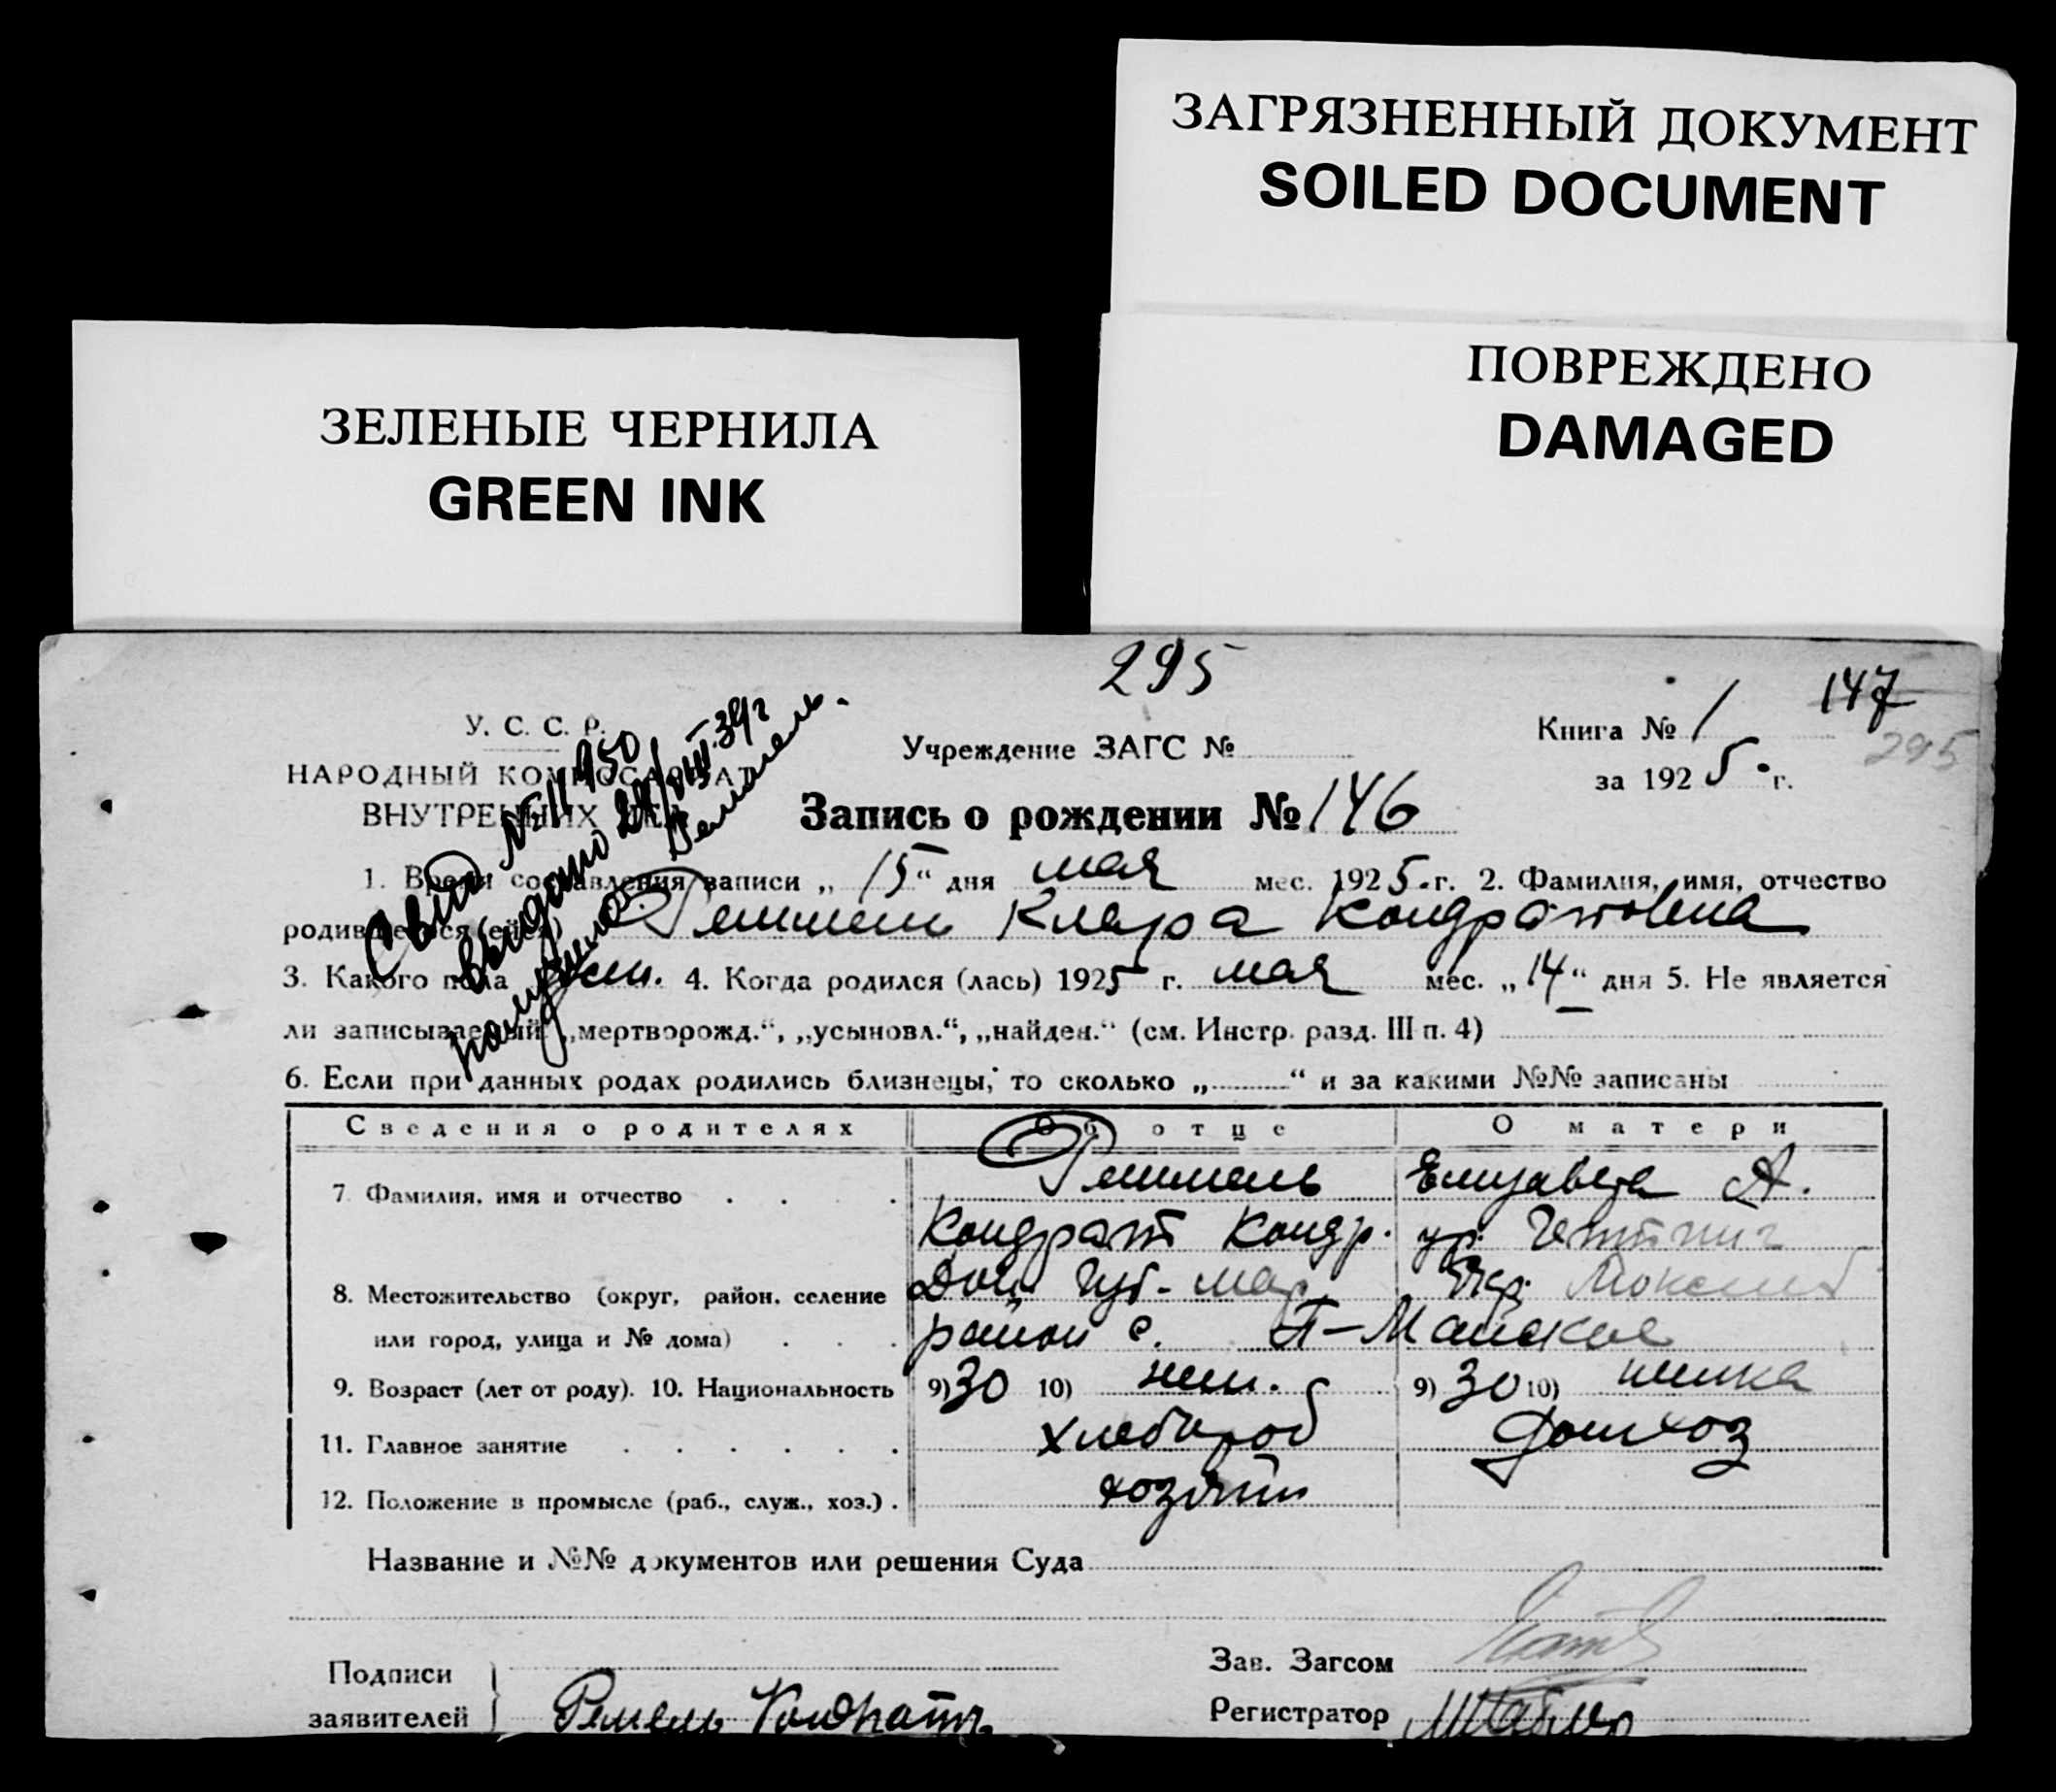 ЗАГРЯЗНЕННЫЙ ДОКУМЕНТ
SOILED DOCUMENT
ПОВРЕЖДЕНО
DAMAGED
ЗЕЛЕНЫЕ ЧЕРНИЛА
GREEN INK
295
147
295
У. С. С. Р.
НАРОДНЫЙ КОМИССАРИАТ
ВНУТРЕННИХ ДЕЛ
Учреждение ЗАГС №
Книга № 1
за 1925 г.
Запись о рождении № 146
Свид. № 11950
выдано 29/VIII-39 г
получила Реммель.
1. Время составления записи „15“ дня мая мес. 1925 г. 2. Фамилия, имя, отчество
родившегося (ейся) Реммель Клара Кондратовна
3. Какого пола жен. 4. Когда родился (лась) 1925 г. мая мес. „14“ дня 5. Не является
ли записываемый „мертворожд.“, „усыновл.“, „найден.“ (см. Инстр. разд. III п. 4)
6. Если при данных родах родились близнецы, то сколько „ “ и за какими №№ записаны
Сведения о родителях Об отце О матери
7. Фамилия, имя и отчество Реммель Елизавета А.
Кондрат Кондр. ур.
8. Местожительство (округ, район, селение Дон. губ. Мар.
или город, улица и № дома) район с. П-Майское
9. Возраст (лет от роду). 10. Национальность 9) 30 10) нем. 9) 30 10) немка
11. Главное занятие хлебороб домхоз
12. Положение в промысле (раб., служ., хоз.) хозяин
Название и №№ документов или решения Суда
Подписи
заявителей Ремель Кондратъ
Зав. Загсом
Регистратор